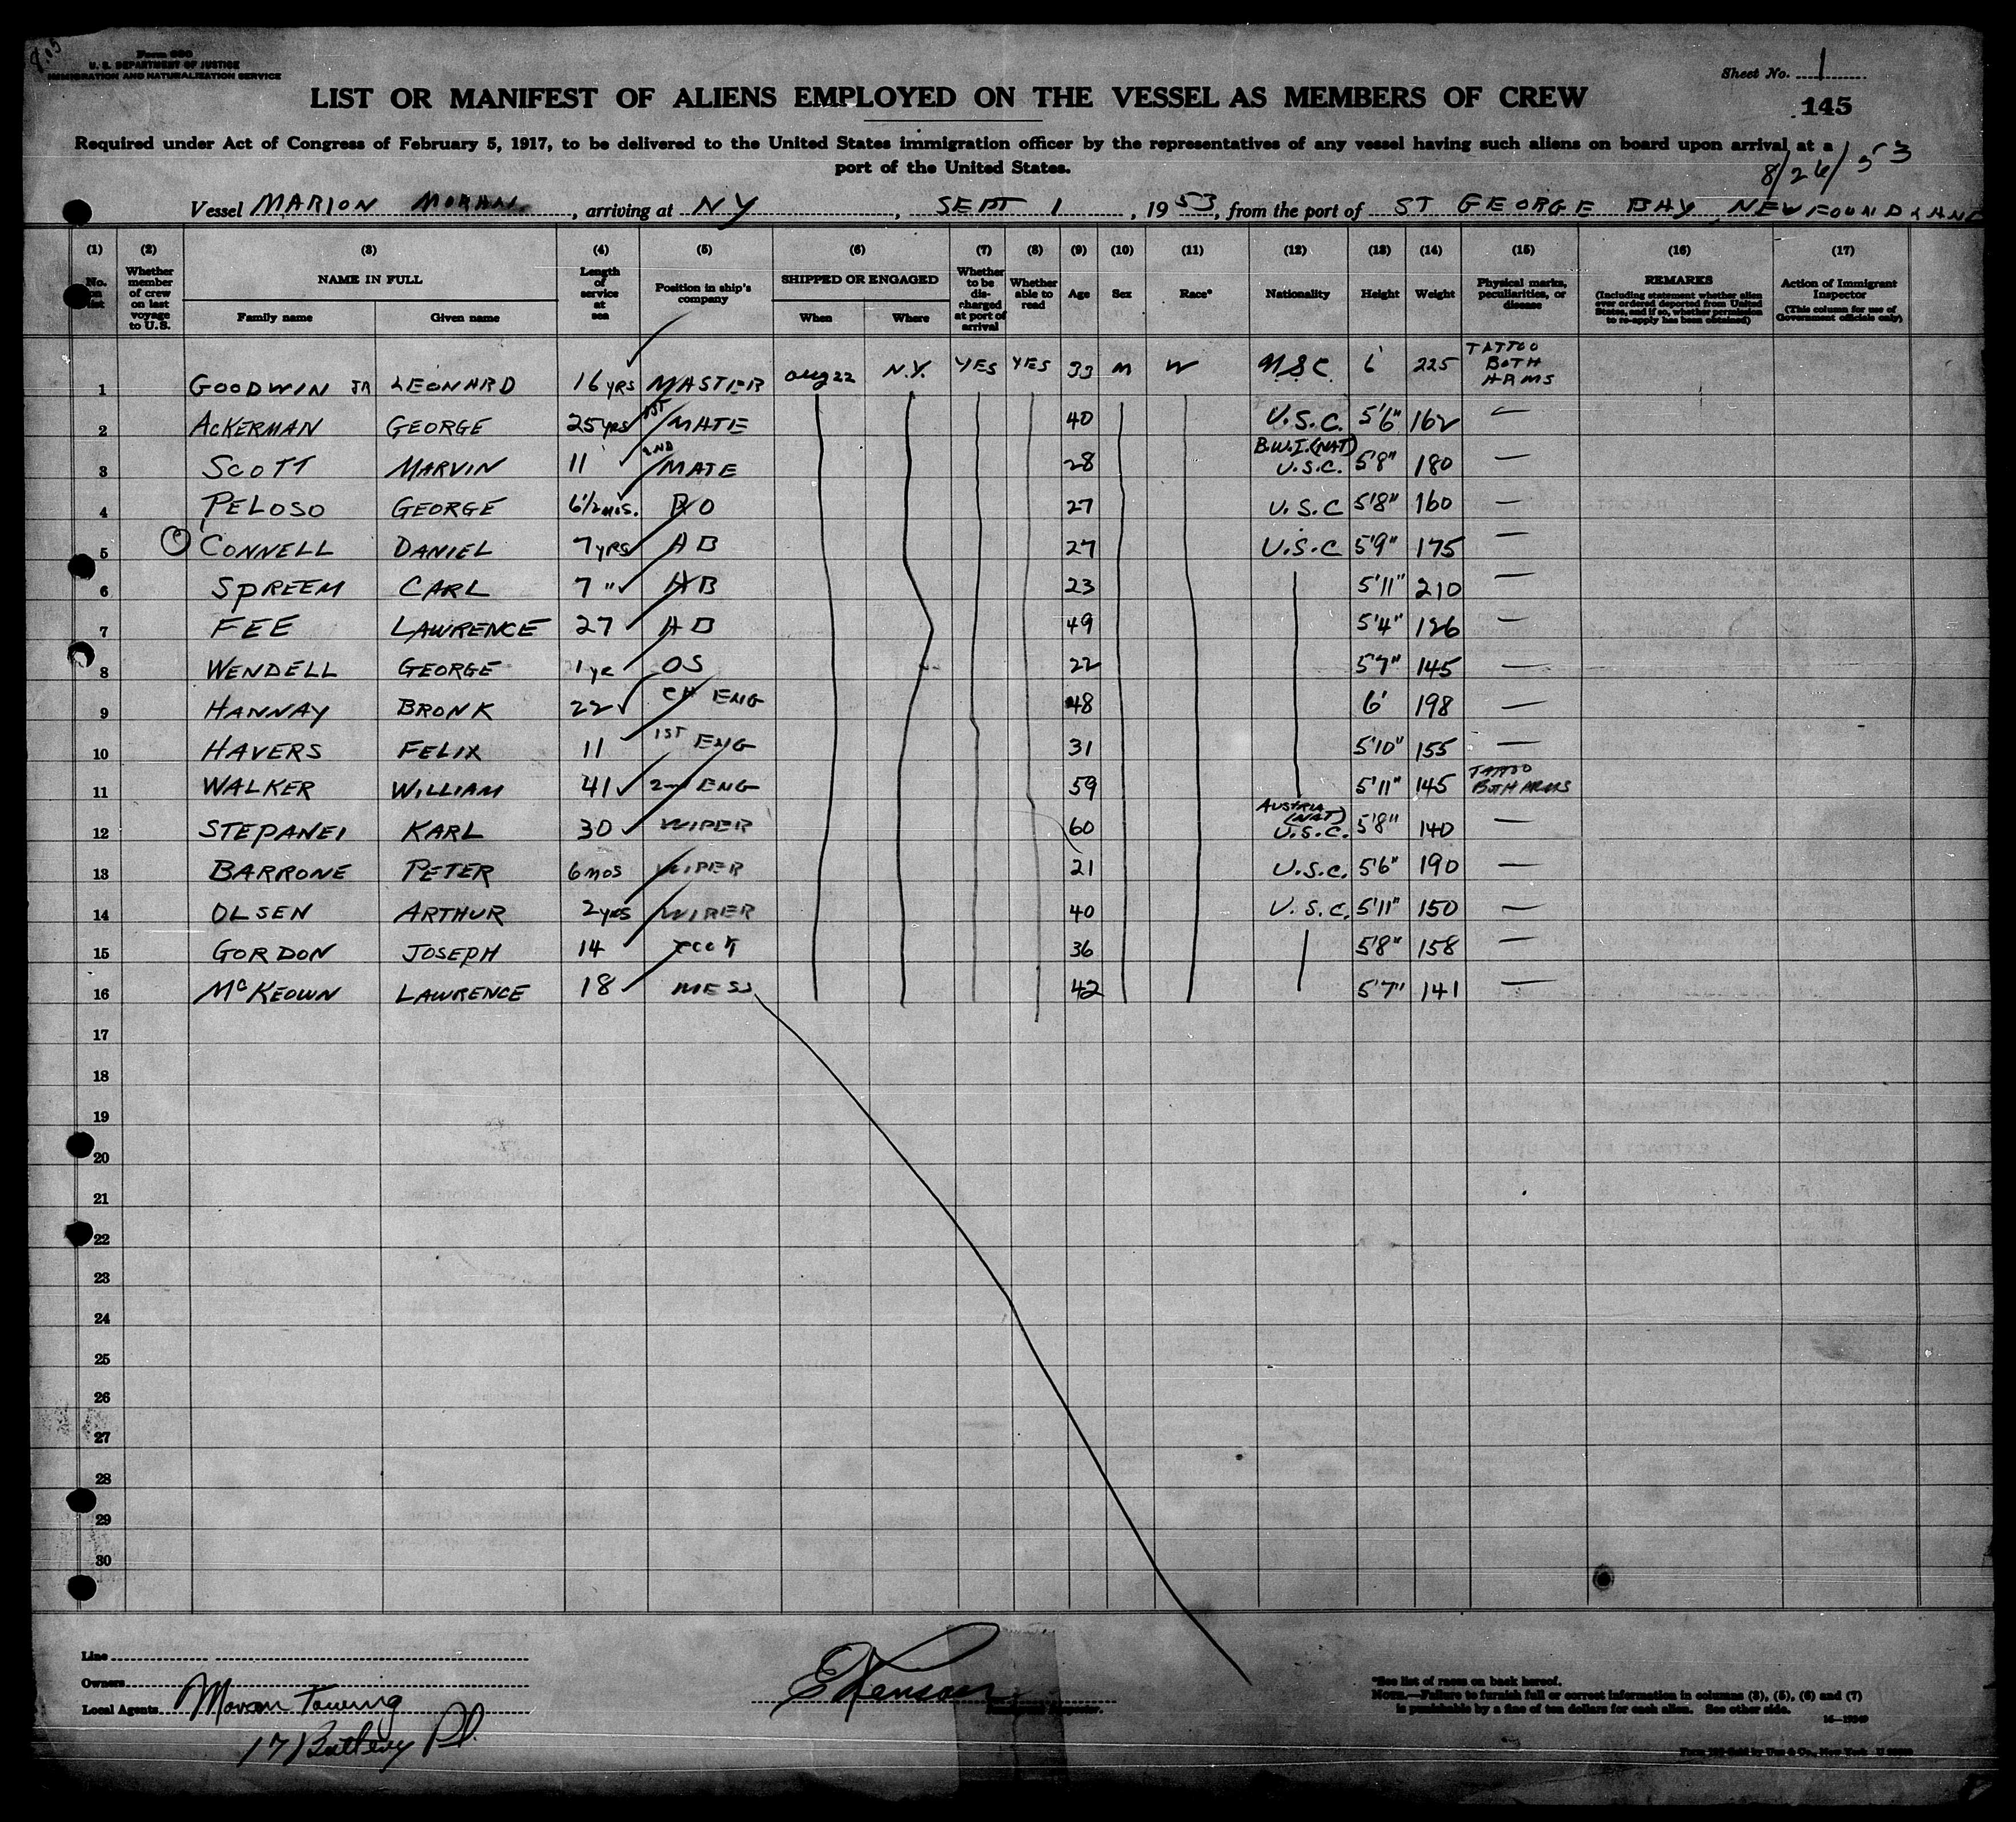 Form 680
U. S. DEPARTMENT OF JUSTICE
IMMIGRATION AND NATURALIZATION SERVICE
Sheet No. 1
LIST OR MANIFEST OF ALIENS EMPLOYED ON THE VESSEL AS MEMBERS OF CREW
145
Required under Act of Congress of February 5, 1917, to be delivered to the United States immigration officer by the representatives of any vessel having such aliens on board upon arrival at a
port of the United States.
8/26/53
Vessel MARION MORAN, arriving at NY, SEPT 1, 1953, from the port of ST GEORGE BAY, NEWFOUNDLAND
(1) (2) (3) (4) (5) (6) (7) (8) (9) (10) (11) (12) (13) (14) (15) (16) (17)
No. on list Whether member of crew on last voyage to U.S. NAME IN FULL Family name Given name Length of service at sea Position in ship's company SHIPPED OR ENGAGED When Where Whether to be discharged at port of arrival Whether able to read Age Sex Race* Nationality Height Weight Physical marks, peculiarities, or disease REMARKS (Including statement whether alien ever ordered deported from United States, and if so, whether permission to re-apply has been obtained) Action of Immigrant Inspector (This column for use of Government officials only)
1 GOODWIN JR LEONARD 16 YRS MASTER Aug 22 N.Y. YES YES 33 M W U.S.C. 6' 225 TATTOO BOTH ARMS
2 ACKERMAN GEORGE 25 YRS 1ST MATE 40 U.S.C. 5'6" 162 —
3 SCOTT MARVIN 11 2ND MATE 28 B.W.I. (NAT) U.S.C. 5'8" 180 —
4 PELOSO GEORGE 6 1/2 MOS. RO 27 U.S.C 5'8" 160 —
5 CONNELL DANIEL 7 YRS AB 27 U.S.C 5'9" 175 —
6 SPREEM CARL 7 " AB 23 5'11" 210 —
7 FEE LAWRENCE 27 AB 49 5'4" 126 —
8 WENDELL GEORGE 1 yr OS 22 5'7" 145 —
9 HANNAY BRONK 22 CH ENG 48 6' 198 —
10 HAVERS FELIX 11 1ST ENG 31 5'10" 155 —
11 WALKER WILLIAM 41 2nd ENG 59 5'11" 145 TATTOO BOTH ARMS
12 STEPANEI KARL 30 WIPER 60 AUSTRIA (NAT) U.S.C. 5'8" 140 —
13 BARRONE PETER 6 mos WIPER 21 U.S.C. 5'6" 190 —
14 OLSEN ARTHUR 2 yrs WIPER 40 U.S.C. 5'11" 150 —
15 GORDON JOSEPH 14 COOK 36 5'8" 158 —
16 McKEOWN LAWRENCE 18 MESS 42 5'7" 141 —
17
18
19
20
21
22
23
24
25
26
27
28
29
30
Line
Owners
Local Agents Moran Towing
17 Battery Pl.
Immigrant Inspector.
*See list of races on back hereof.
NOTE.—Failure to furnish full or correct information in columns (3), (5), (6) and (7)
is punishable by a fine of ten dollars for each alien. See other side.